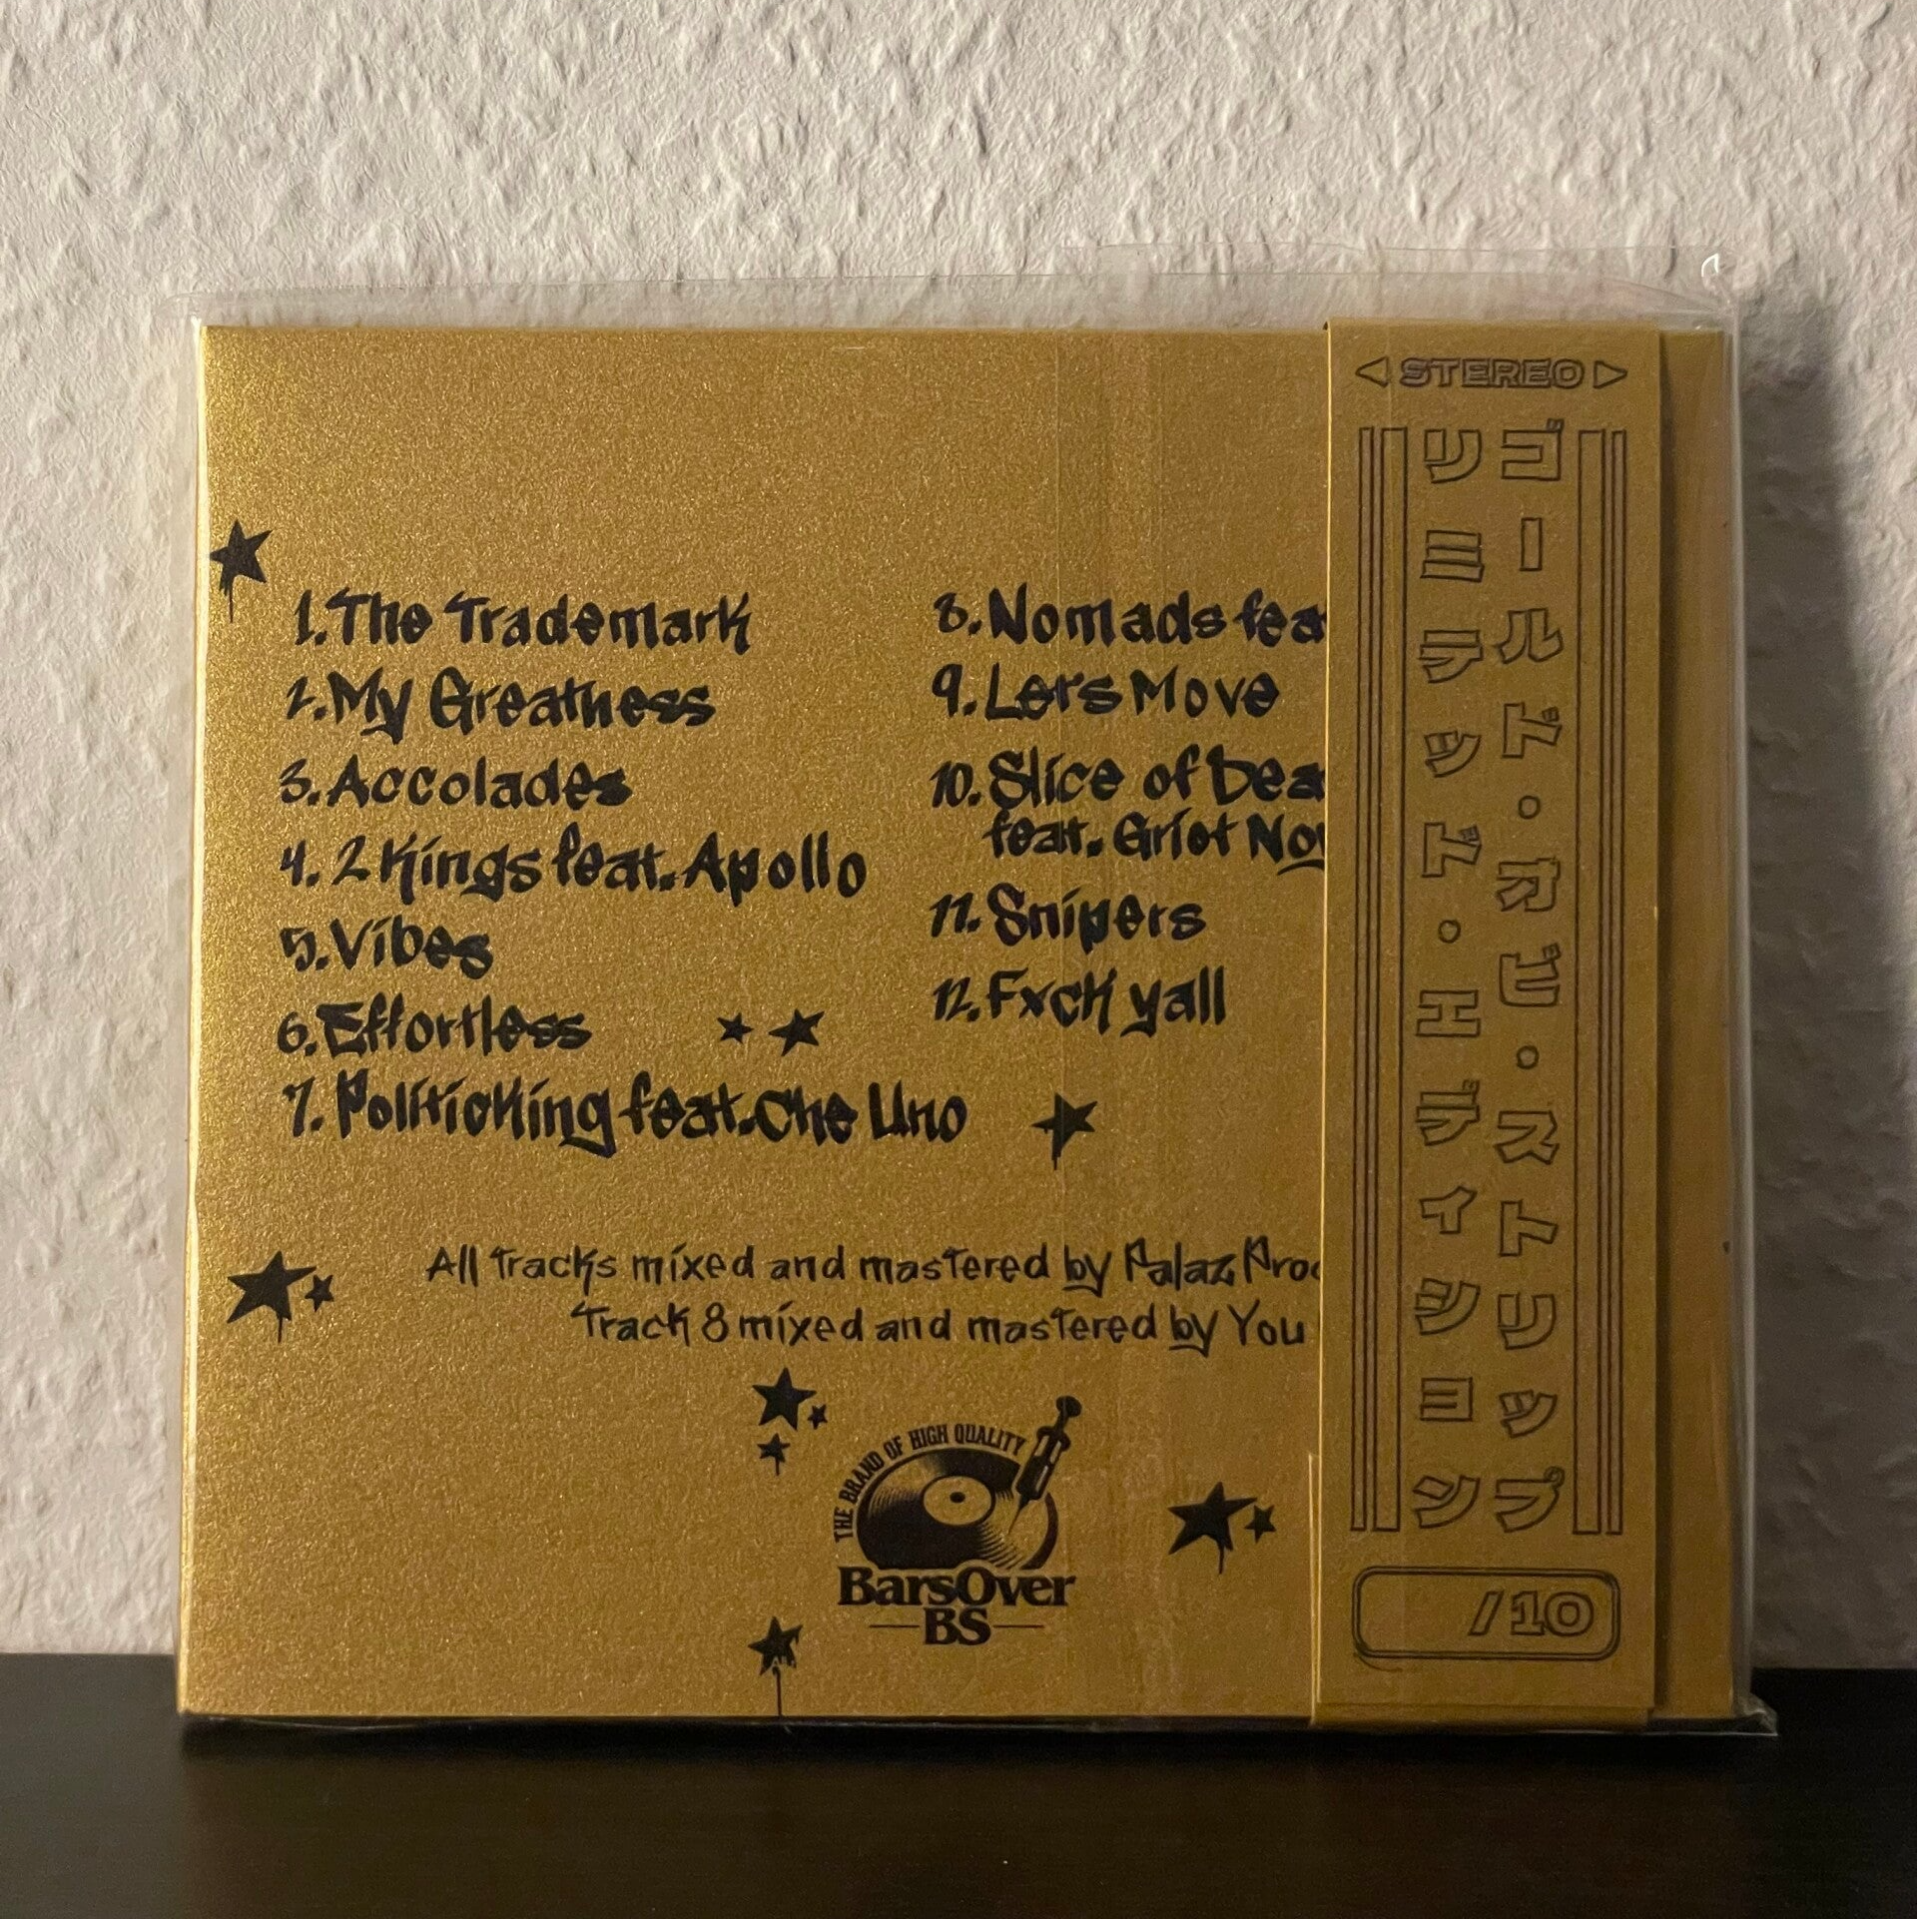 1. The Trademark
2. My Greatness
3. Accolades
4. 2 Kings feat. Apollo
5. Vibes
6. Effortless
7. Politicking feat. Che Uno
8. Nomads
9. Lets Move
10. Slice of
feat. Griot
11. Snipers
12. Fxck yall
All tracks mixed and mastered by Palaz
Track 8 mixed and mastered by You
THE BRAND OF HIGH QUALITY
BarsOver
BS
STEREO
ゴールド・オビ・ストリップ
リミテッド・エディション
/10